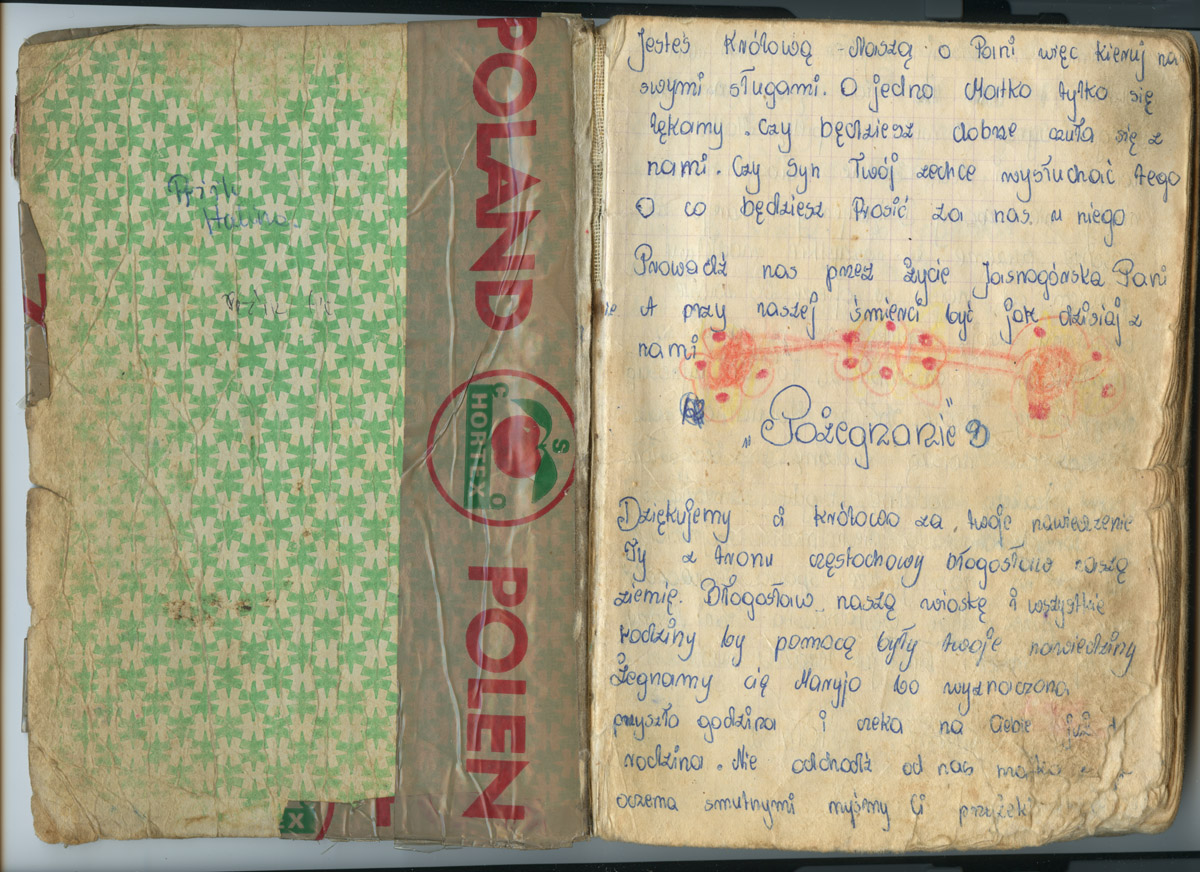 Halina
POLAND
HORTEX
POLEN
Jesteś Królową Naszą o Pani więc kieruj na
swymi sługami. O jedno Matko tylko się
lękamy. Czy będziesz dobrze czuła się z
nami. Czy Syn Twój zechce wysłuchać tego
O co będziesz Prosić za nas u niego
Prowadź nas przez Życie Jasnogórska Pani
A przy naszej śmierci być jak dzisiaj z
nami
„Pożegnanie”
Dziękujemy ci Królowo za twoje nawiedzenie
Ty z tronu częstochowy błogosław naszą
ziemię. Błogosław naszą wioskę i wszystkie
rodziny by pomocą były twoje nawiedziny
Żegnamy cię Maryjo bo wyznaczona
przyszła godzina i czeka na Ciebie już
rodzina. Nie odchodź od nas matko
oczema smutnymi myśmy Ci przyjek